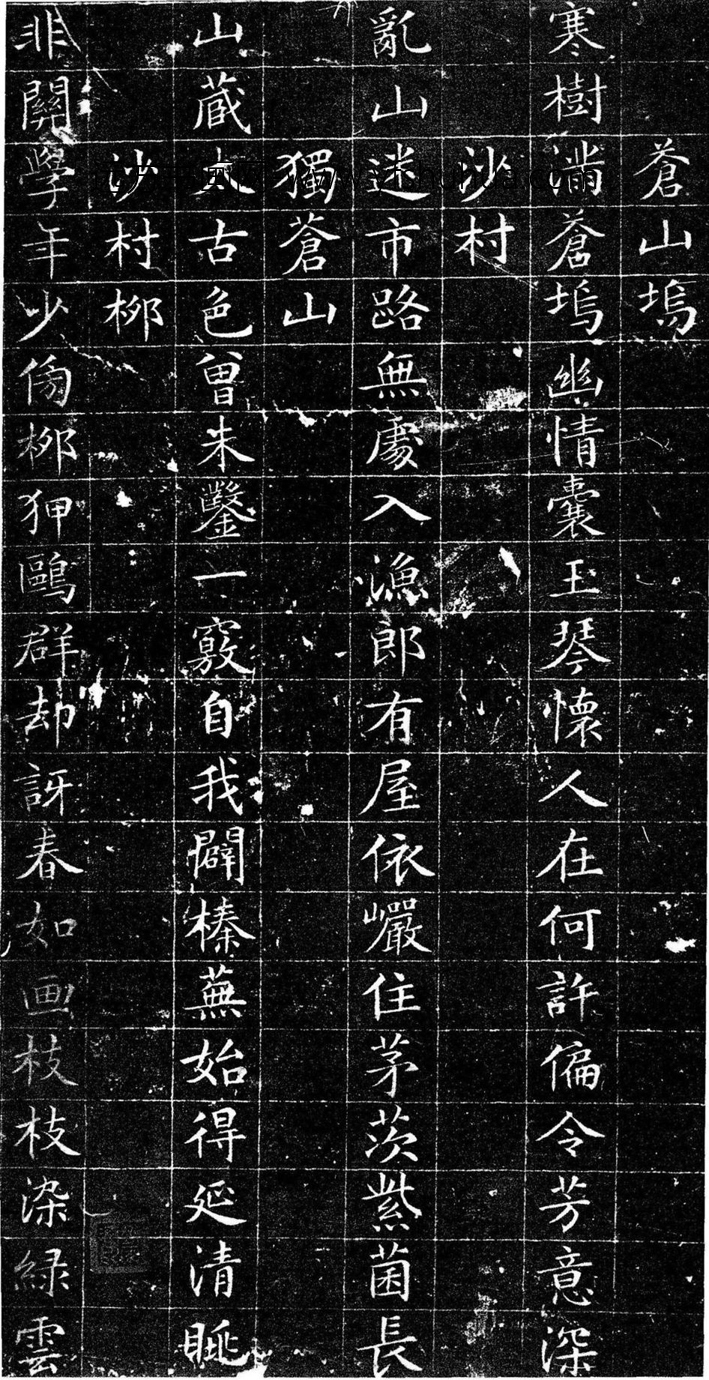 蒼山塢
寒樹滿蒼塢幽情囊玉琴懷人在何許偏令芳意深
沙村
亂山迷市路無處入漁郎有屋依巖住茅茨紫菌長
獨蒼山
山藏太古色曾未鑿一竅自我闢榛蕪始得延清眺
沙村柳
非關學年少傍柳狎鷗群却訝春如画枝枝染綠雲